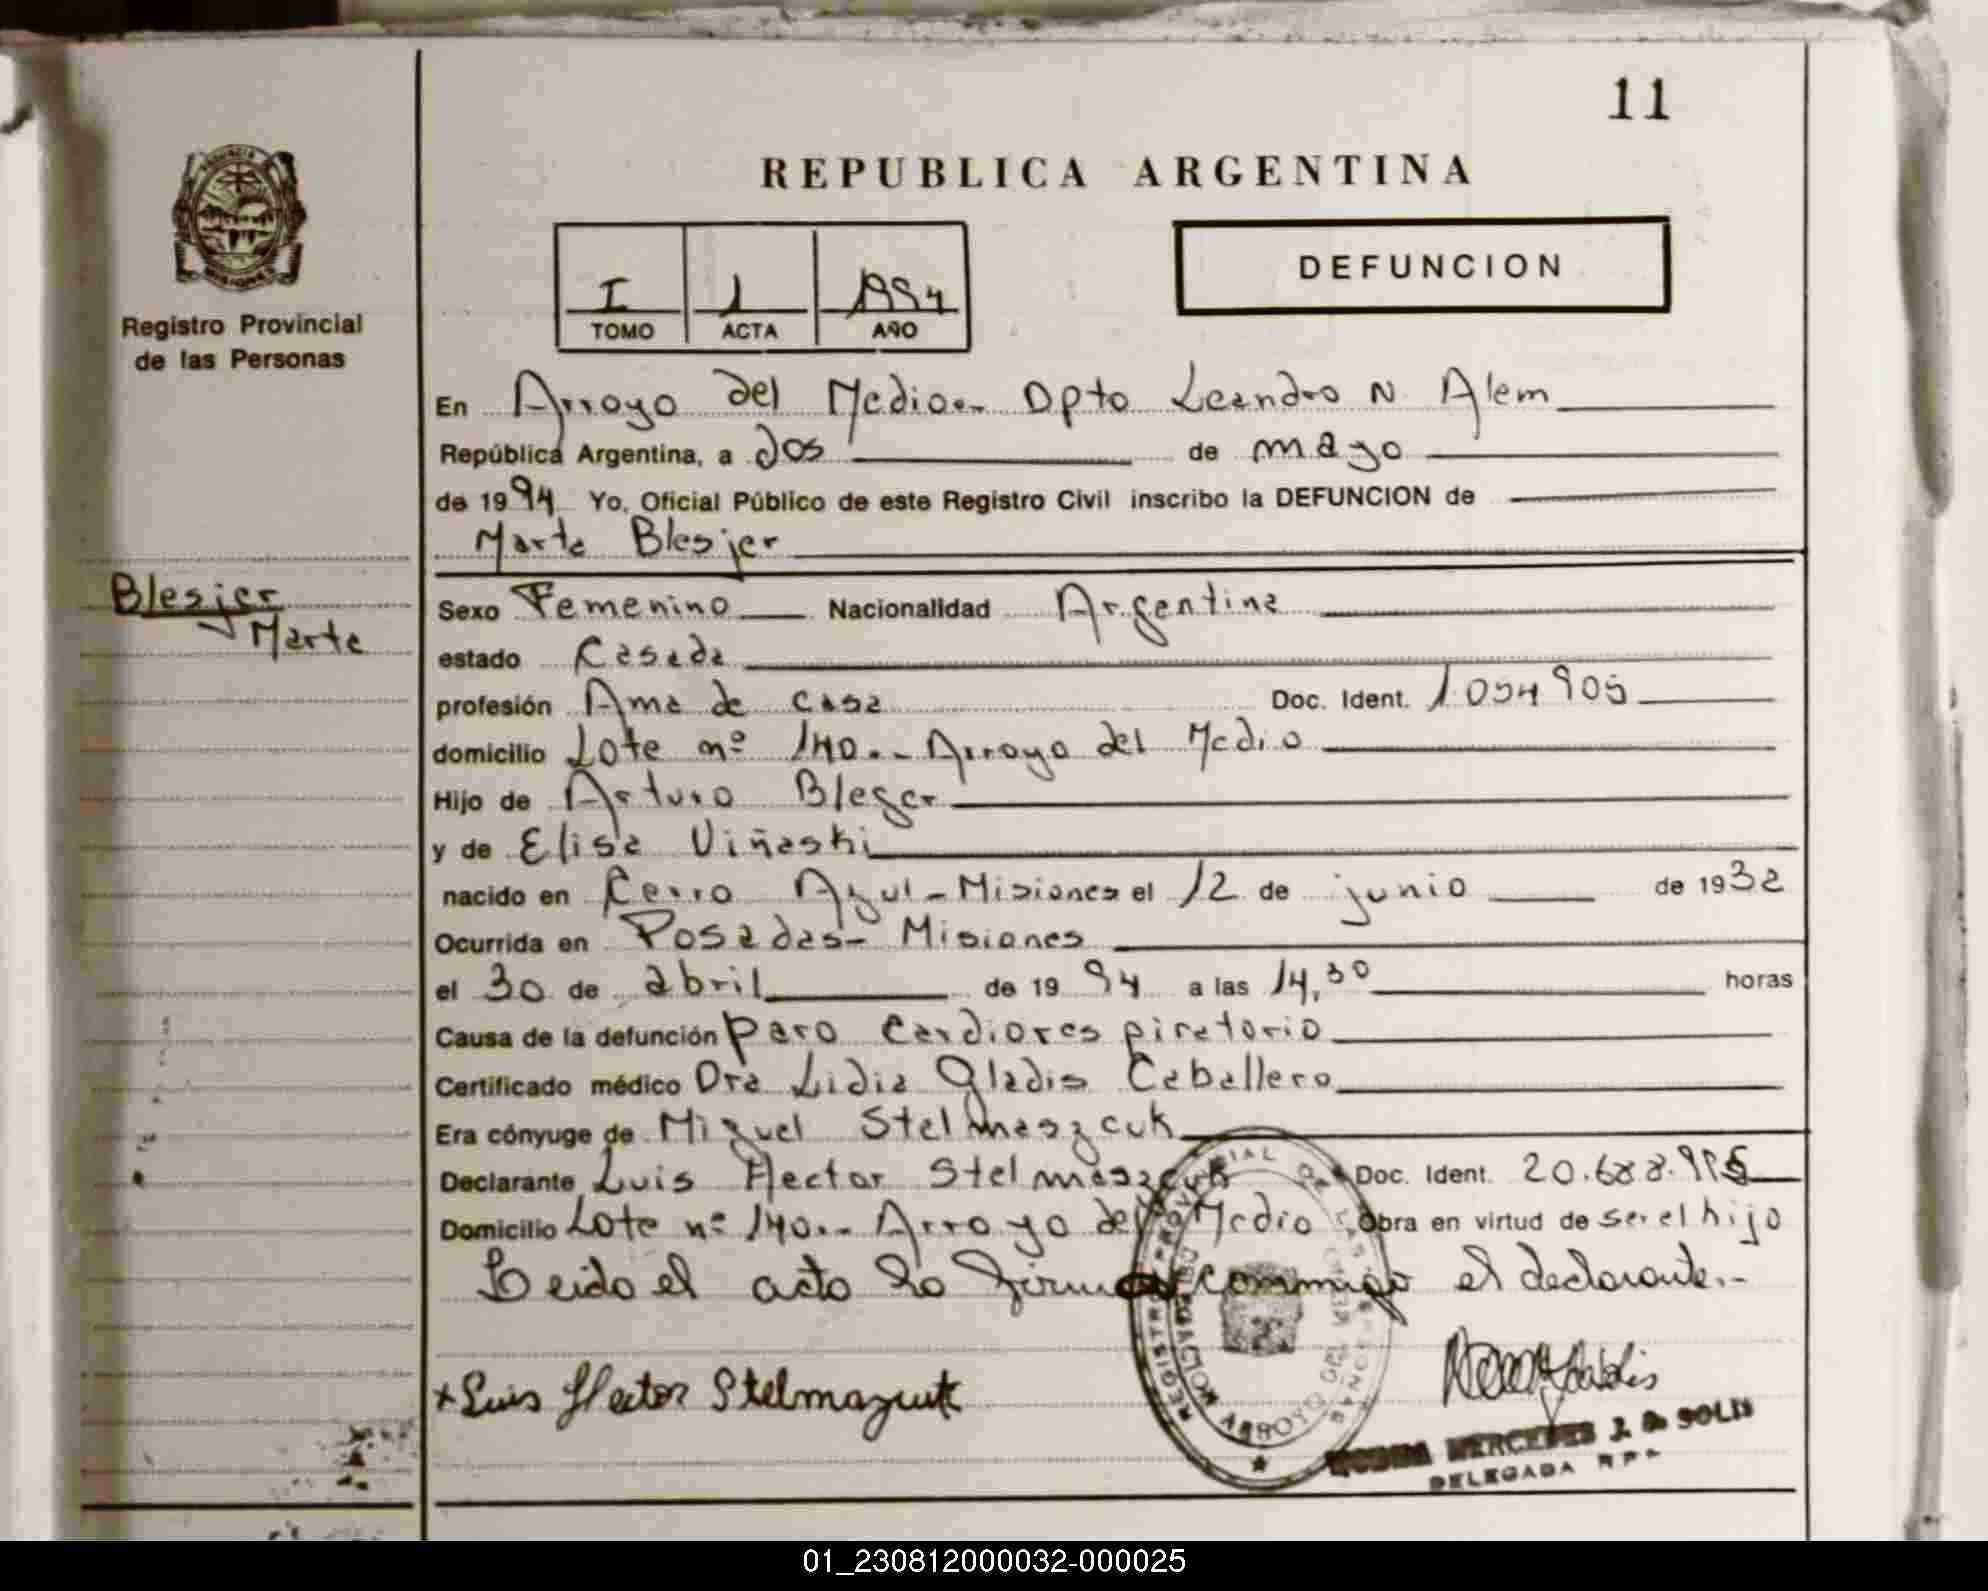 11
REPUBLICA ARGENTINA
I 1 1994
TOMO ACTA AÑO
DEFUNCION
Registro Provincial
de las Personas
En Arroyo del Medio.- Dpto Leandro N. Alem
República Argentina, a dos de mayo
de 1994 Yo, Oficial Público de este Registro Civil inscribo la DEFUNCION de
Marta Blesjer
Blesjer
Marta
Sexo Femenino Nacionalidad Argentina
estado Casada
profesión Ama de casa Doc. Ident.
domicilio Lote nº 140.- Arroyo del Medio
Hijo de Arturo Bleger
y de Elisa Viñaski
nacido en Cerro Azul - Misiones el 12 de junio de 1932
Ocurrida en Posadas - Misiones
el 30 de abril de 1994 a las 14,30 horas
Causa de la defunción paro cardiorespiratorio
Certificado médico Dra Lidia Gladis Caballero
Era cónyuge de Miguel Stelmaszcuk
Declarante Luis Hector Stelmaszcuk Doc. Ident.
Domicilio Lote nº 140.- Arroyo del Medio Obra en virtud de ser el hijo
Leido el acto lo firma conmigo el declarante.-
x Luis Hector Stelmazuk
MERCEDES J. SOLIS
DELEGADA R P
01_230812000032-000025